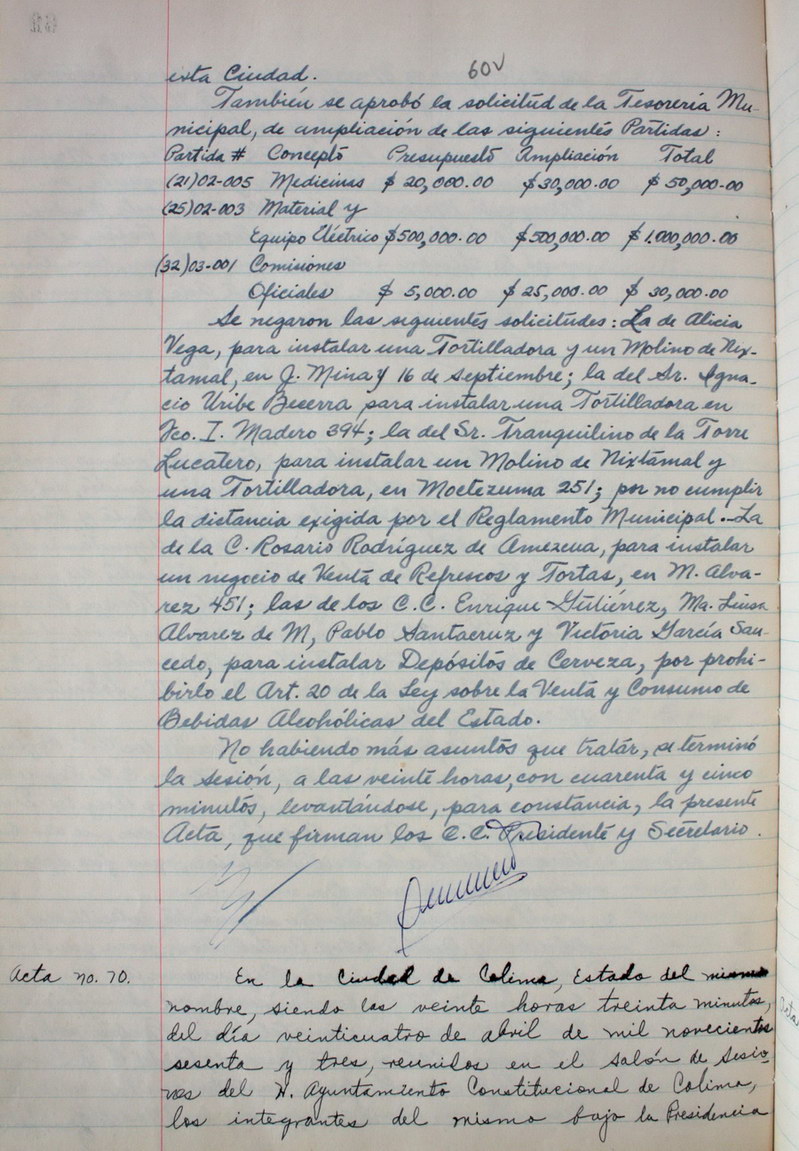 60V
esta Ciudad.
También se aprobó la solicitud de la Tesorería Mu-
nicipal, de ampliación de las siguientes Partidas:
Partida # Concepto Presupuesto Ampliación Total
(21)02-005 Medicinas $ 20,000.00 $30,000.00 $ 50,000-00
(25)02-003 Material y
Equipo Eléctrico $500,000.00 $500,000.00 $ 1.000,000.00
(32)03-001 Comisiones
Oficiales $ 5,000.00 $ 25,000.00 $ 30,000.00
Se negaron las siguientes solicitudes: La de Alicia
Vega, para instalar una Tortilladora y un Molino de Nix-
tamal, en J. Mina y 16 de Septiembre; la del Sr. Igna-
cio Uribe Becerra para instalar una Tortilladora en
Fco. I. Madero 394; la del Sr. Tranquilino de la Torre
Lucatero, para instalar un Molino de Nixtamal y
una Tortilladora, en Moctezuma 251; por no cumplir
la distancia exigida por el Reglamento Municipal.-La
de la C. Rosario Rodríguez de Amezcua, para instalar
un negocio de Venta de Refrescos y Tortas, en M. Alva-
rez 451; las de los C.C. Enrique Gutiérrez, Ma. Luisa
Alvarez de M, Pablo Santacruz y Victoria García Sau-
cedo, para instalar Depósitos de Cerveza, por prohi-
birlo el Art. 20 de la Ley sobre la Venta y Consumo de
Bebidas Alcohólicas del Estado.
No habiendo más asuntos que tratar, se terminó
la sesión, a las veinte horas, con cuarenta y cinco
minutos, levantándose, para constancia, la presente
Acta, que firman los C.C. Presidente y Secretario.
Acta no. 70.
En la Ciudad de Colima, Estado del mismo
nombre, siendo las veinte horas treinta minutos,
del día veinticuatro de abril de mil novecientos
sesenta y tres, reunidos en el salón de Sesio-
nes del H. Ayuntamiento Constitucional de Colima,
los integrantes del mismo bajo la Presidencia